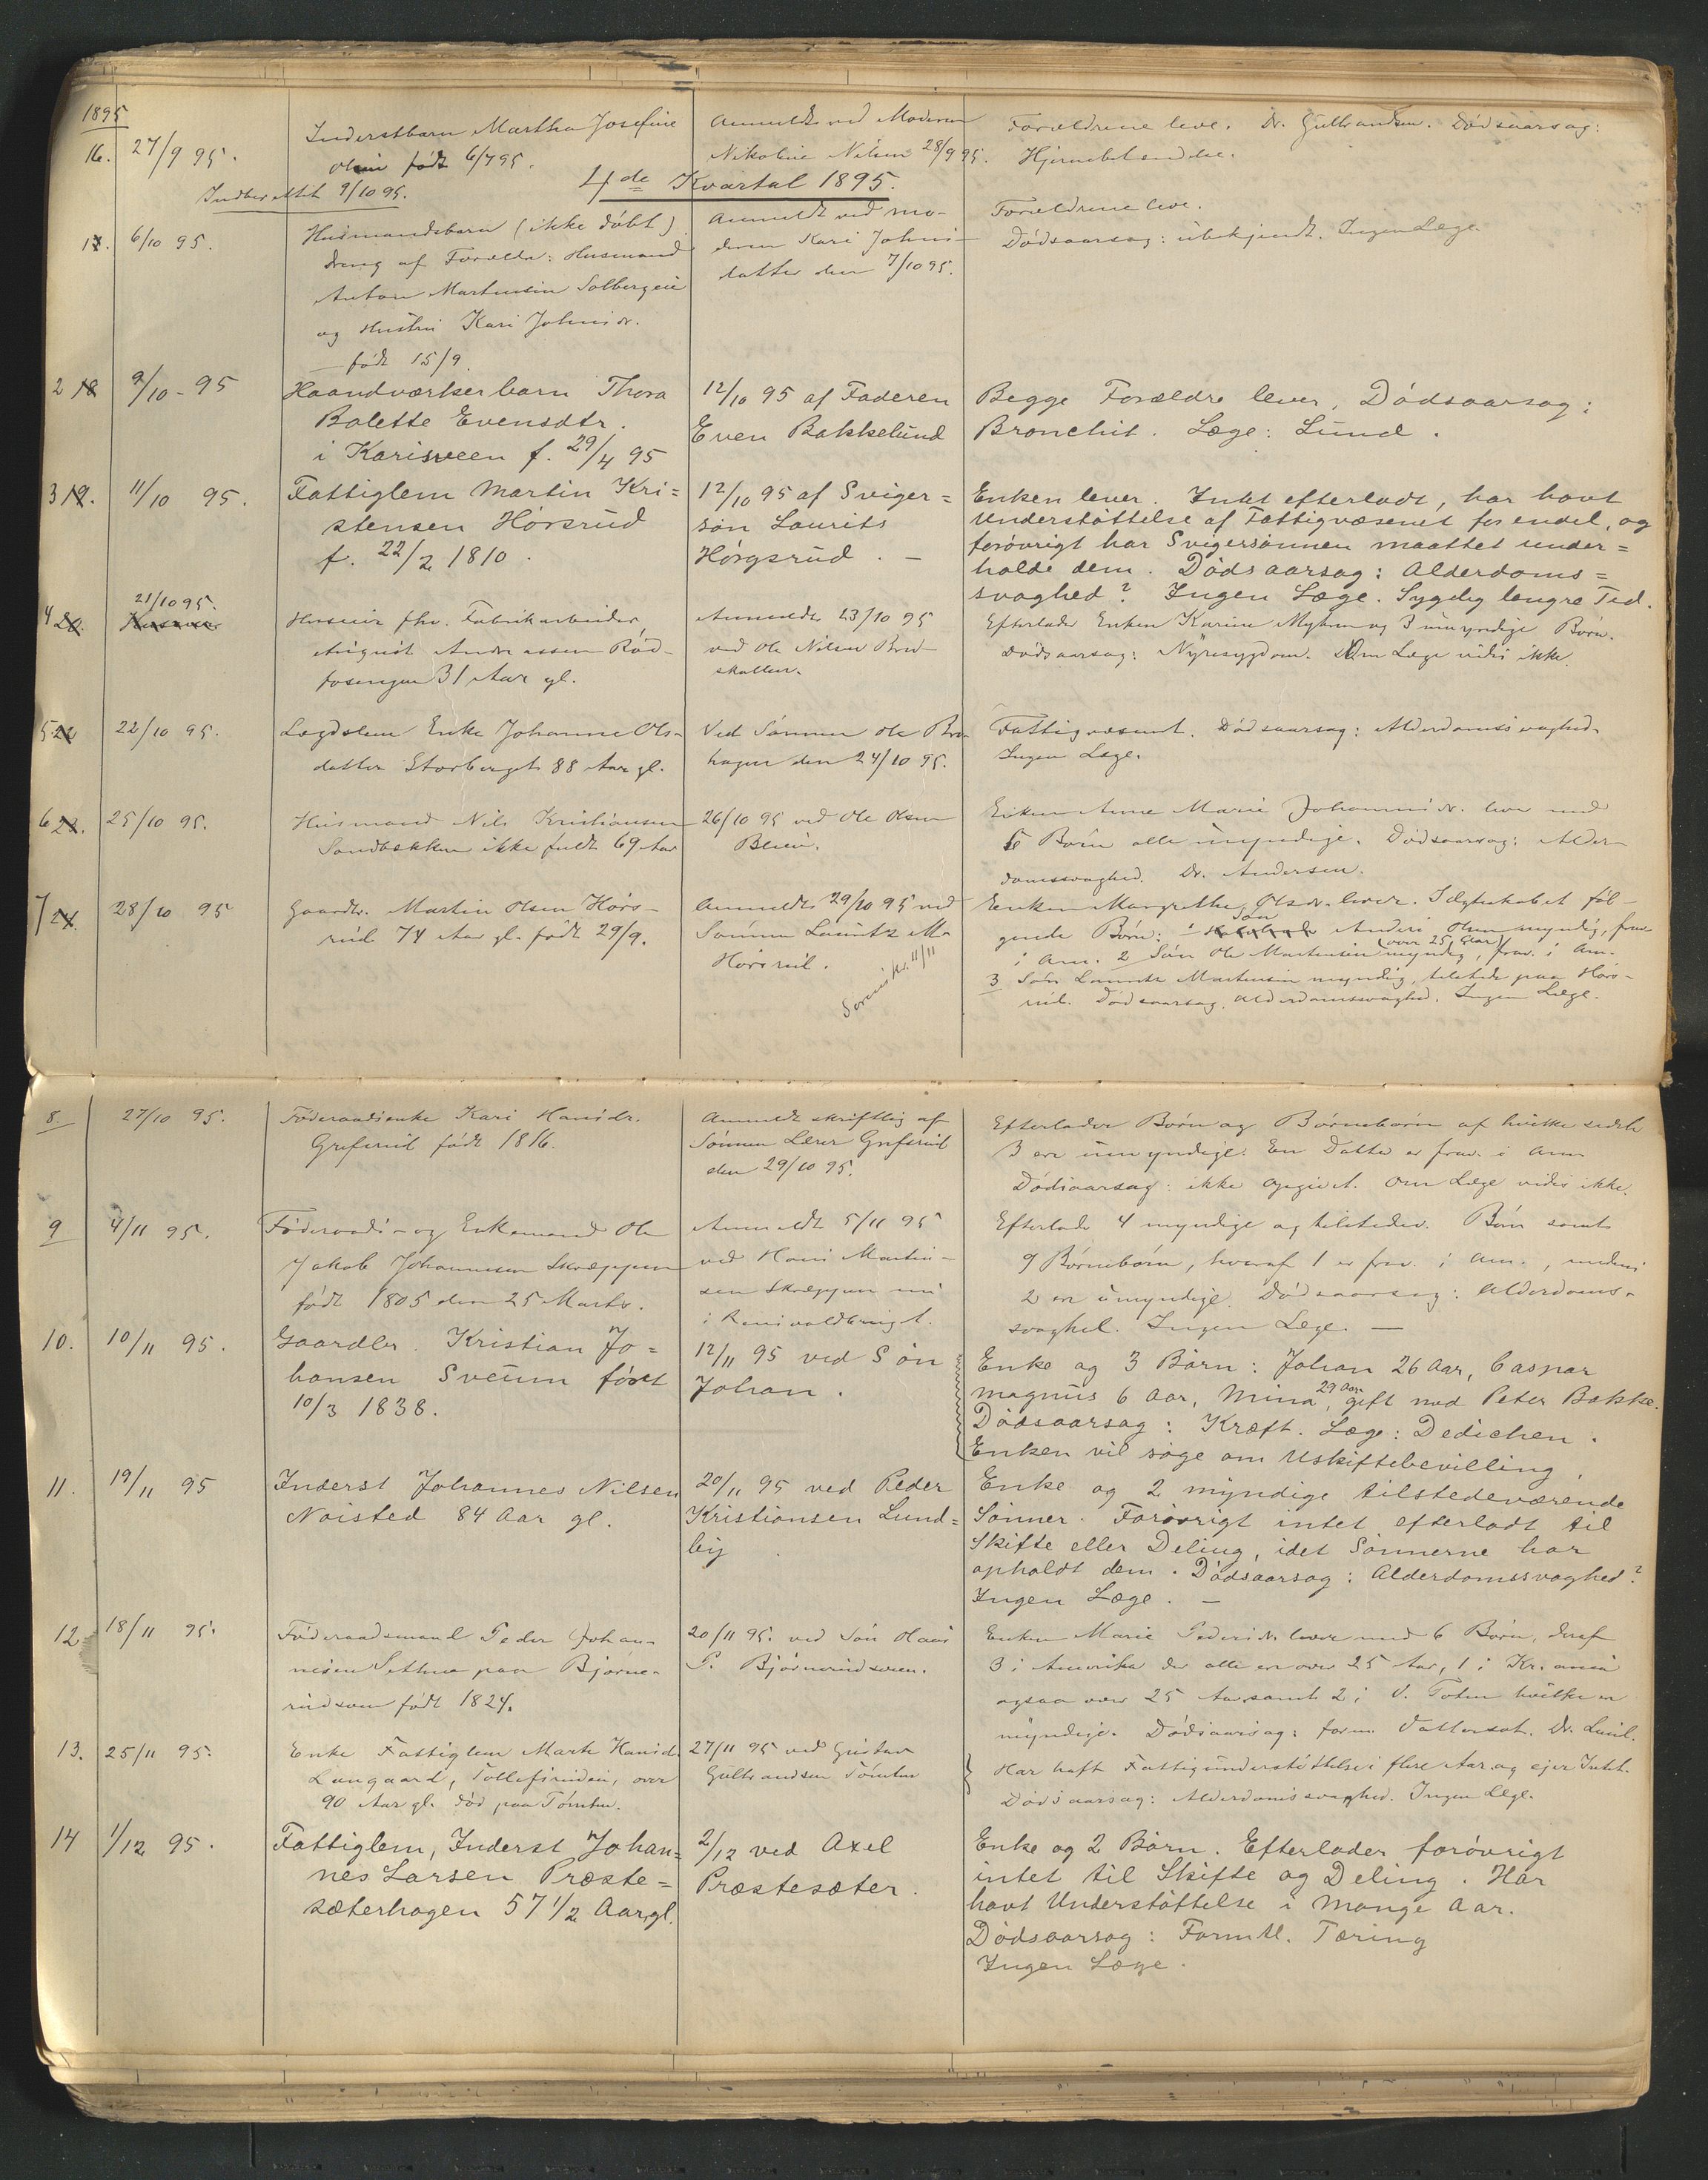 1895
16. 27/9 95. Inderstbarn Martha Josefine Anmeldt ved Moderen Forældrene leve. Dr. Gulbrandsen. Dødsaarsag:
Olsen født 6/7 95. Nikoline Nilsen 28/9 95. Hjernebetændelse.
Indberettet 9/10 95. 4de Kvartal 1895.
17. 6/10 95. Husmandsbarn (ikke døbt) Anmeldt ved Mo- Forældrene leve.
dreng af Forældr: Husmand deren Kari Johns- Dødsaarsag: ubekjendt. Ingen Læge
Anton Martinsen Solbergeie datter den 7/10 95.
og Hustru Kari Johnsdr.
født 15/9.
2 18 9/10 - 95 Haandværkerbarn Thora 12/10 95 af Faderen Begge Forældre lever, Dødsaarsag:
Bolette Evensdtr. Even Bakkelund Bronchit. Læge: Lund.
i Karisveen f. 29/4 95
3 19. 11/10 95. Fattiglem Martin Kri= 12/10 95 af Sviger= Enken lever. Intet efterladt, har havt
stensen Hørsrud søn Laurits Understøttelse af Fattigvæsenet for endel, og
f. 22/2 1810. Hørgsrud. — forøvrigt har Svigersønnen maattet under=
holde dem. Dødsaarsag: Alderdoms=
svaghed? Ingen Læge. Sygelig længre Tid.
4 20. 21/10 95. Husmir fhv. Fabrikarbeider Anmeldt 23/10 95 Efterlader Enken Karine Myhren og 3 umyndige Børn.
August Andreassen Rød- ved Ole Nilsen Bred- Dødsaarsag: Nyresygdom. Om Læge vides ikke.
fosengen 31 Aar gl. skallen.
5 22/10 95. Lægdslem Enke Johanne Ols- Ved Sønnen Ole Bra- Fattigvæsenet. Dødsaarsag: Alderdomssvaghed.
datter Storberget 88 Aar gl. hagen den 24/10 95. Ingen Læge.
6 23. 25/10 95. Husmand Nils Kristiansen 26/10 95 ved Ole Olsen Enken Anne Marie Johannesdr. leve med
Sandbakken ikke fuldt 69 Aar Blien. 6 Børn alle umyndige. Dødsaarsag: Alder-
domssvaghed. Dr. Andersen.
7 24 28/10 95 Gaardbr. Martin Olsen Hørs- Anmeldt 29/10 95 ved Enken Margrethe Olsdr. lever. I Ægteskabet føl-
rud 74 Aar gl. født 29/9. Sønnen Lauritz M. gende Børn: 1 Søn Anders Olsen myndig, frav.
Hørsrud. i Am. 2 Søn Ole Martinsen myndig (over 25 Aar), frav. i Am.
3 Søn Lauritz Martinsen myndig, tilstede paa Hørs-
rud. Dødsaarsag. Alderdomssvaghed. Ingen Læge.
8. 27/10 95. Føderaadsenke Kari Hansdr. Anmeldt skriftlig af Efterlader Børn og Børnebørn af hvilke sidste
Grefsrud født 1816. Sønnen Lærer Grefsrud 3 ere umyndige. En Datter er frav. i Am.
den 29/10 95. Dødsaarsag: ikke opgivet. Om Læge vides ikke.
9 4/11 95. Føderaads- og Enkemand Ole Anmeldt 5/11 95 Efterlader 4 myndige og tilstedev. Børn samt
Jakob Johannesen Skræppen ved Hans Martin- 9 Børnebørn, hvoraf 1 er frav. i Am., medens
født 1805 den 25 Marts. sen Skræppen nu 2 ere umyndige. Dødsaarsag: Alderdoms-
i svaghed. Ingen Læge. —
10. 10/11 95. Gaardbr. Kristian Jo= 12/11 95 ved Søn Enke og 3 Børn: Johan 26 Aar, Caspar
hansen Sveum født Johan. Magnus 6 Aar, Mina 29 Aar, gift med Peter Bakke.
10/3 1838. Dødsaarsag: Kræft. Læge: Dedichen.
Enken vil søge om Uskiftebevilling.
11. 19/11 95 Inderst Johannes Nilsen 20/11 95 ved Peder Enke og 2 myndige tilstedeværende
Noisted 84 Aar gl. Kristiansen Lund= Sønner. Forøvrigt intet efterladt til
by Skifte eller Deling, idet Sønnerne har
opholdt dem. Dødsaarsag: Alderdomssvaghed?
Ingen Læge. —
12 18/11 95. Føderaadsmand Peder Johan- 20/11 95. ved Søn Hans Enken Marie Pedersdr. lever med 6 Børn, deraf
nesen Sethne paa Bjørne- P. Bjørnerudsveen. 3 i Amerika der alle ere over 25 Aar, 1 i Kr.ania
rudsveen født 1824. ogsaa over 25 Aar samt 2 i V. Toten hvilke er
myndige. Dødsaarsag: form. Vattersot. Dr. Lund.
13. 25/11 95. Enke Fattiglem Marte Hansd. 27/11 95 ved Gustav Har haft Fattigunderstøttelse i flere Aar og ejer Intet.
Langaard, Tollefsrudeie, over Gulbrandsen Tømten Dødsaarsag: Alderdomssvaghed. Ingen Læge.
90 Aar gl. død paa Tømten.
14 1/12 95. Fattiglem, Inderst Johan= 2/12 ved Axel Enke og 2 Børn. Efterlader forøvrigt
nes Larsen Præste= Præstesæter. intet til Skifte og Deling. Har
sæterhagen 57 1/2 Aar gl. havt Understøttelse i mange Aar.
Dødsaarsag: Formtl. Tæring
Ingen Læge.